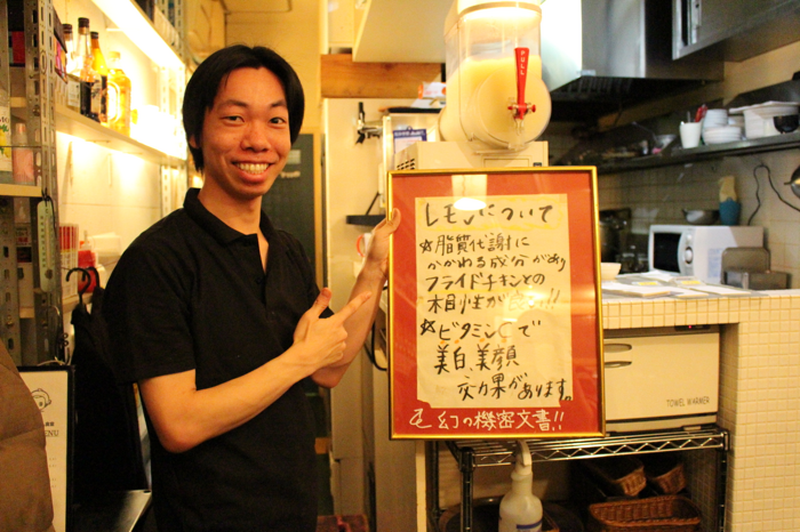 PULL
レモンについて
☆脂質代謝に
かかわる成分があり
フライドチキンとの
相性が良い!!
☆ビタミンCで
美白、美顔
効果があります。
幻の機密文書!!
TOWEL WARMER